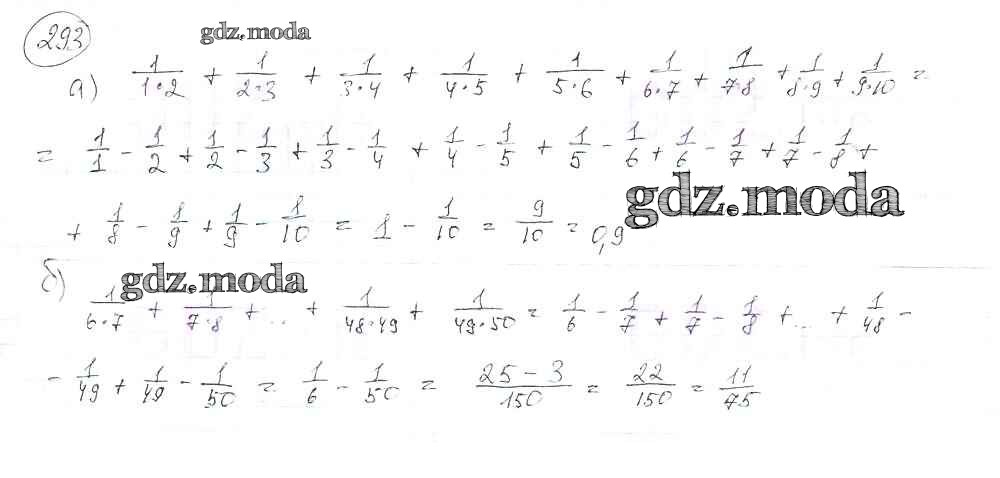 293 gdz.moda
а) 1/(1·2) + 1/(2·3) + 1/(3·4) + 1/(4·5) + 1/(5·6) + 1/(6·7) + 1/(7·8) + 1/(8·9) + 1/(9·10) =
= 1/1 - 1/2 + 1/2 - 1/3 + 1/3 - 1/4 + 1/4 - 1/5 + 1/5 - 1/6 + 1/6 - 1/7 + 1/7 - 1/8 +
gdz.moda
+ 1/8 - 1/9 + 1/9 - 1/10 = 1 - 1/10 = 9/10 = 0,9
gdz.moda
б) 1/(6·7) + 1/(7·8) + ... + 1/(48·49) + 1/(49·50) = 1/6 - 1/7 + 1/7 - 1/8 + ... + 1/48 -
- 1/49 + 1/49 - 1/50 = 1/6 - 1/50 = (25 - 3)/150 = 22/150 = 11/75